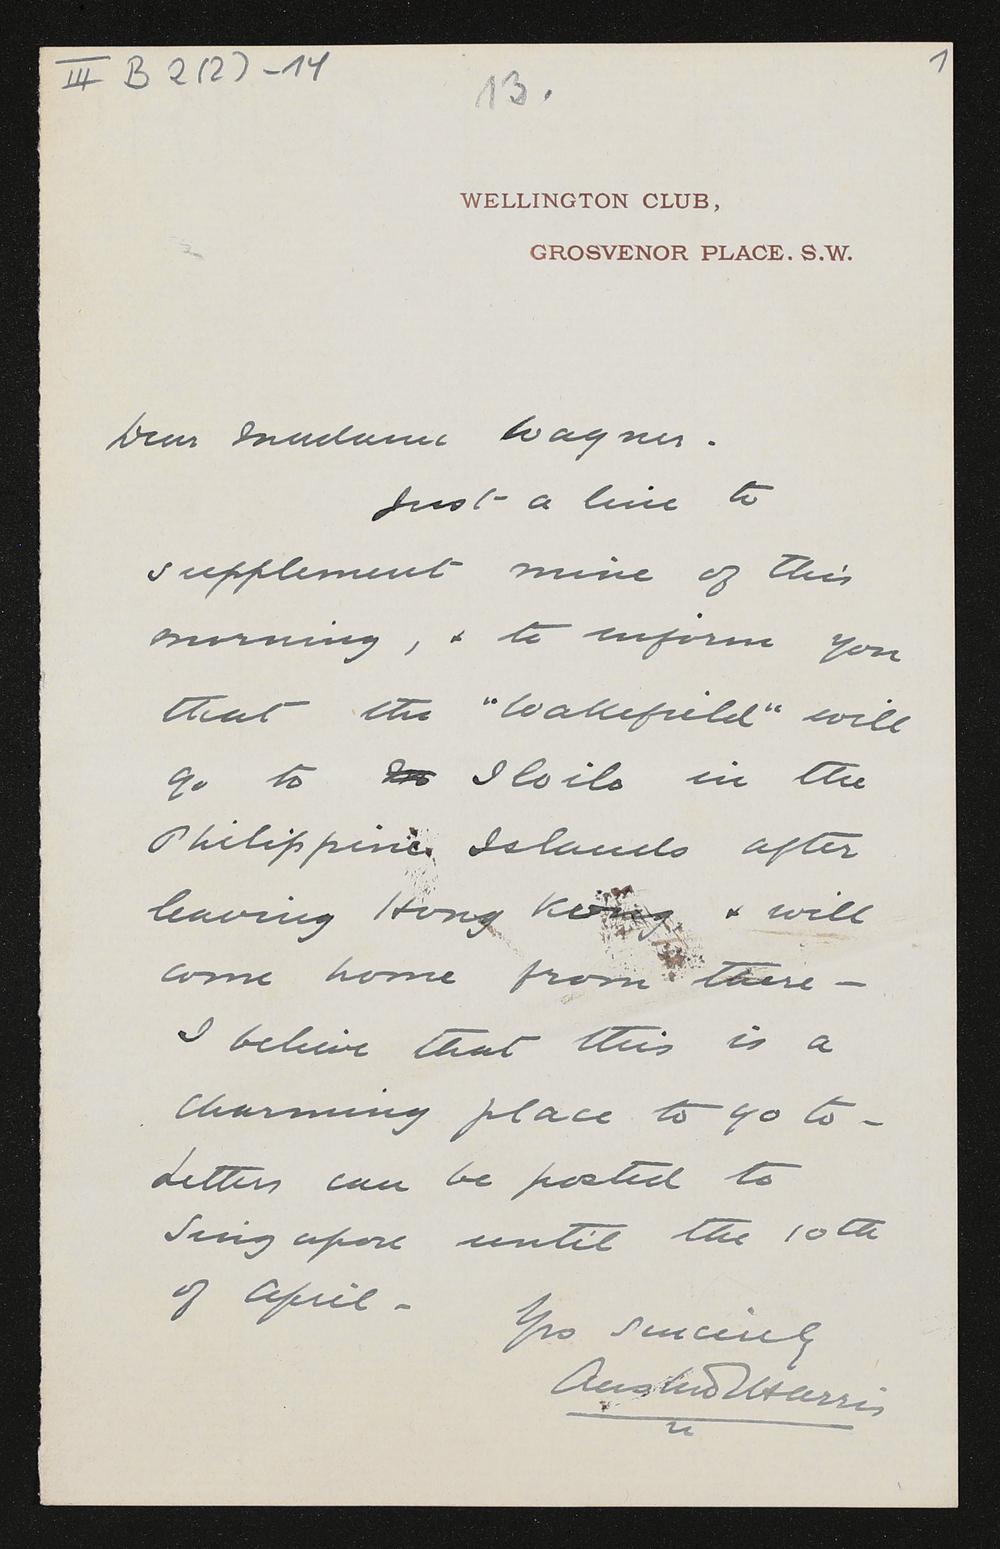 III B 2(2) - 14
13.
1
WELLINGTON CLUB,
GROSVENOR PLACE. S.W.
Dear Madame Wagner.
Just a line to
supplement mine of this
morning, & to inform you
that the "Wakefield" will
go to Iloilo in the
Philippine Islands after
leaving Hong Kong & will
come home from there —
I believe that this is a
charming place to go to -
Letters can be posted to
Singapore until the 10th
of April -
Yrs sincerely
Harris